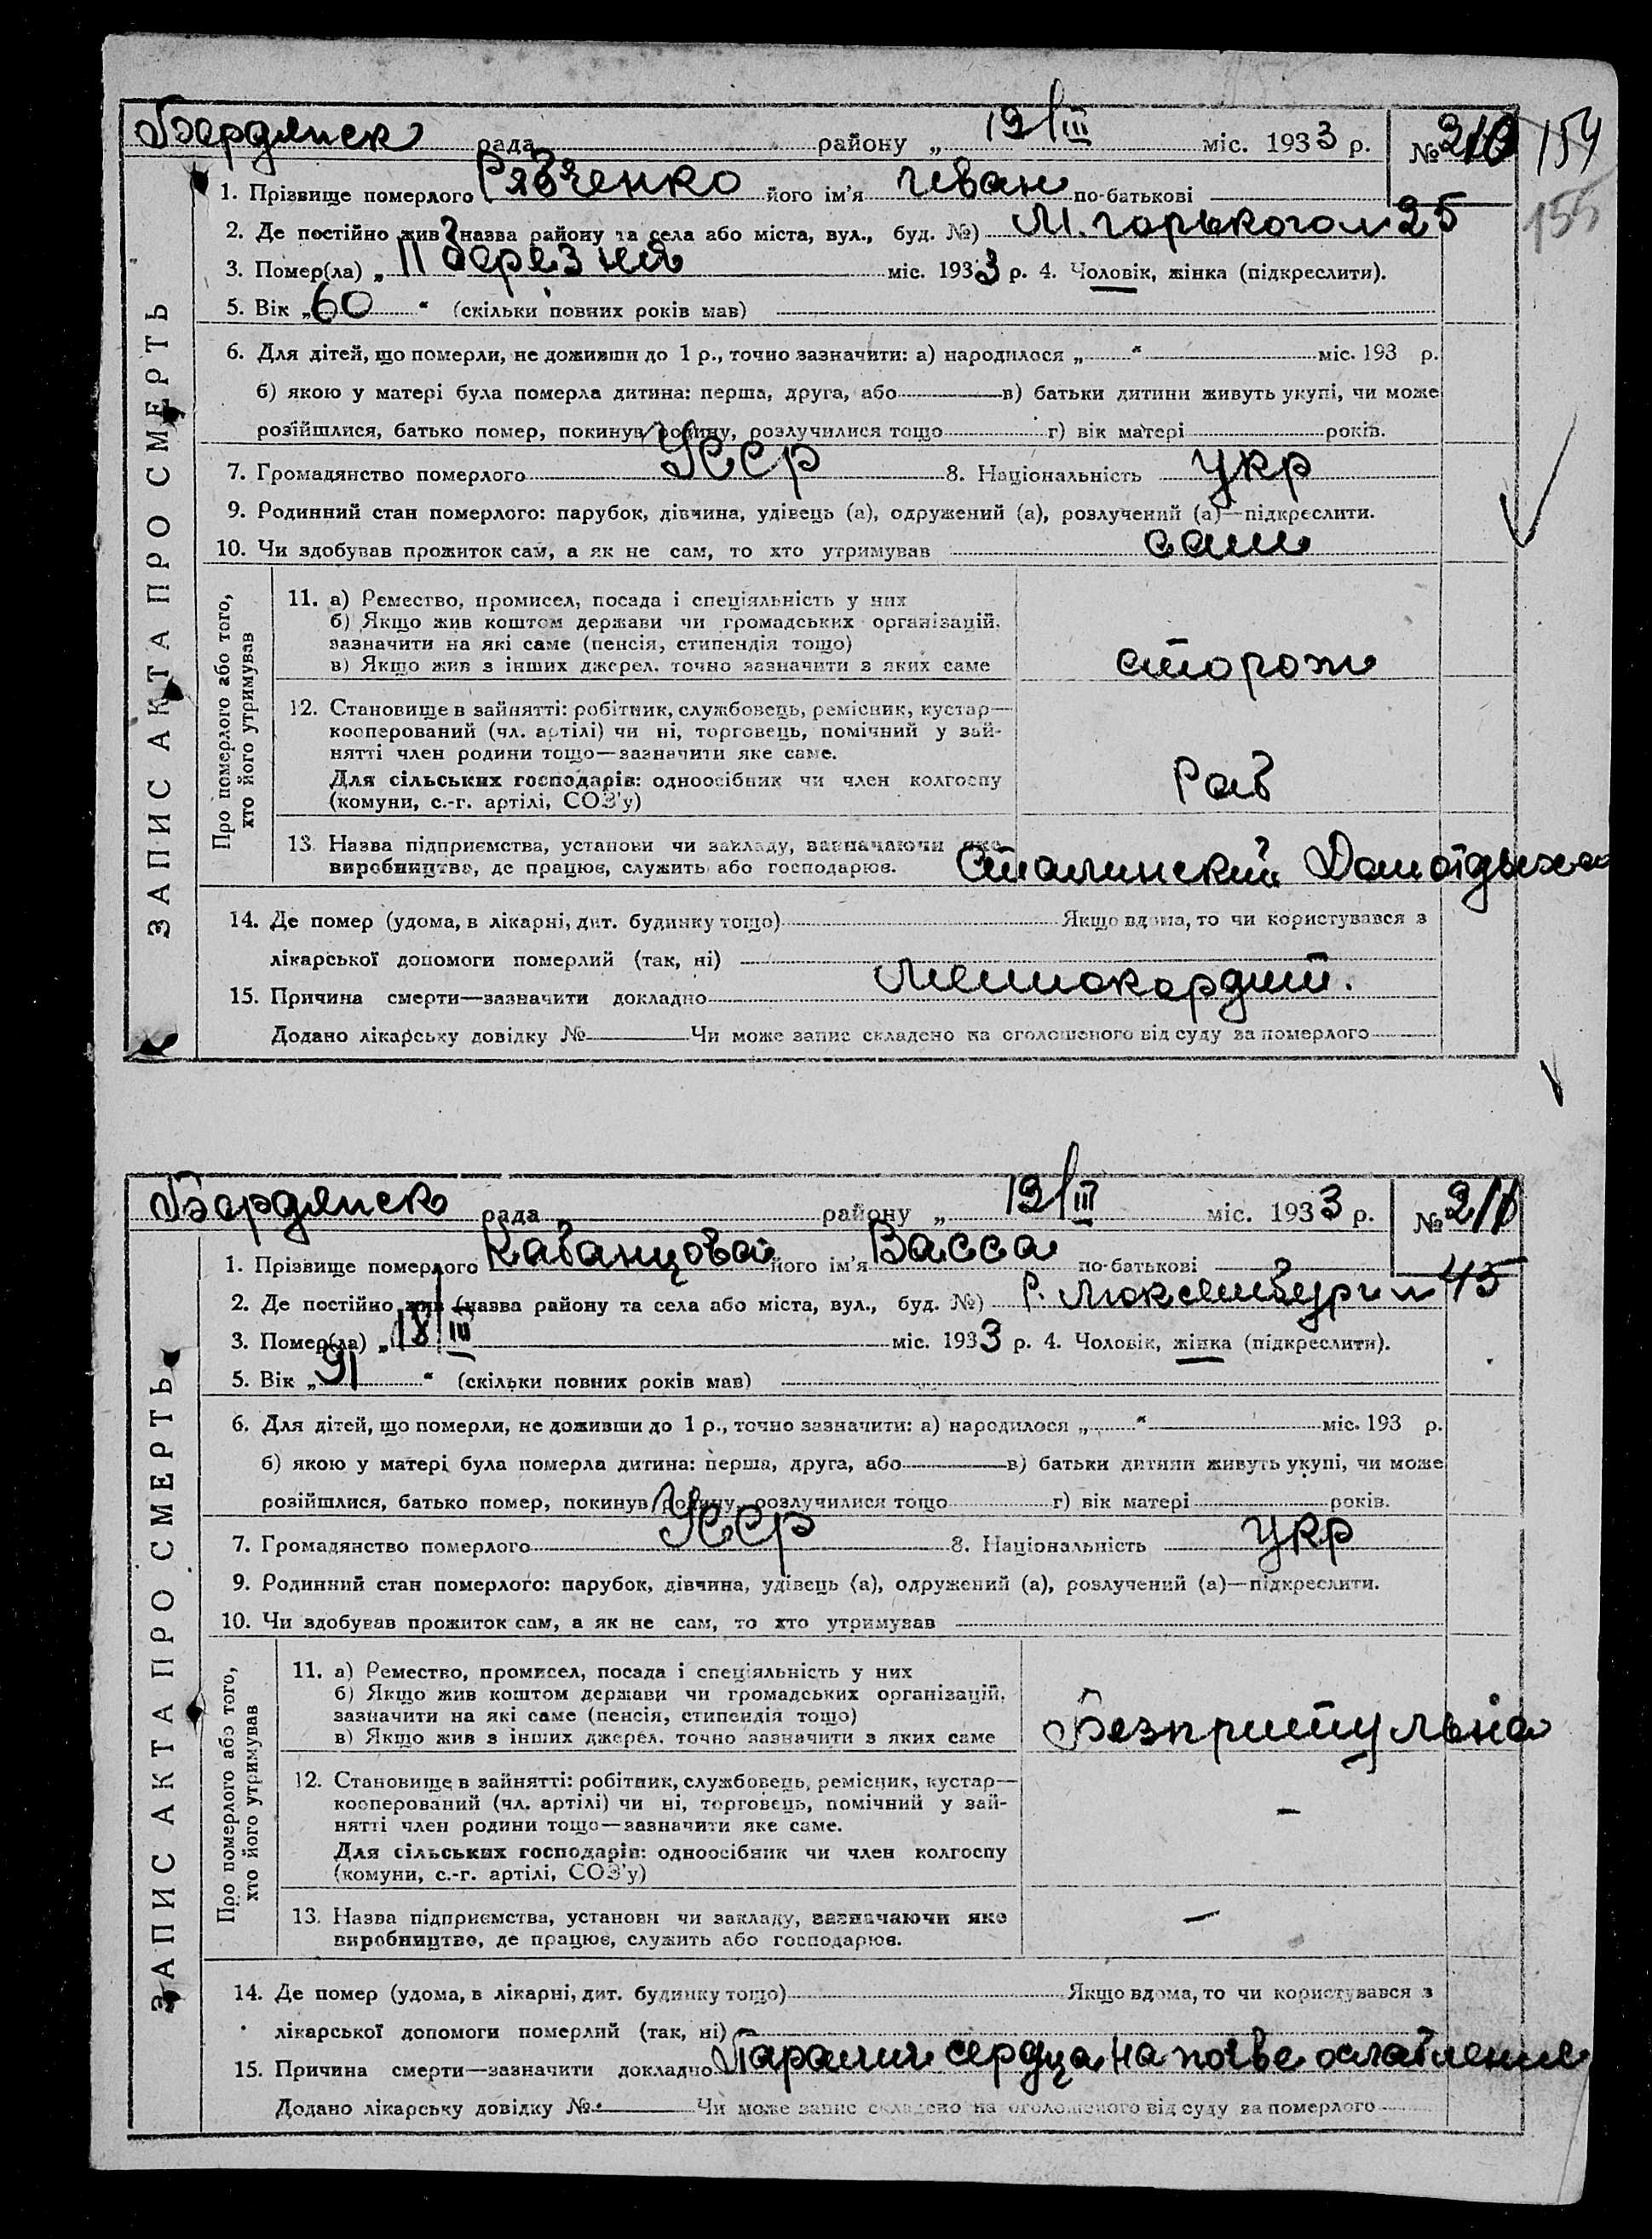 154
155
Бердянск рада району „ 12/III міс. 1933 р. № 210
ЗАПИС АКТА ПРО СМЕРТЬ
1. Прізвище померлого Рябченко його ім'я Иван по-батькові
2. Де постійно жив (назва району та села або міста, вул., буд. №) М. Горького 25
3. Помер(ла) „ 11 березня міс. 1933 р. 4. Чоловік, жінка (підкреслити).
5. Вік „60“ (скільки повних років мав)
6. Для дітей, що померли, не доживши до 1 р., точно зазначити: а) народилося „ “ міс. 193 р.
б) якою у матері була померла дитина: перша, друга, або в) батьки дитини живуть укупі, чи може
розійшлися, батько помер, покинув родину, розлучилися тощо г) вік матері років.
7. Громадянство померлого УССР 8. Національність укр
9. Родинний стан померлого: парубок, дівчина, удівець (а), одружений (а), розлучений (а)—підкреслити.
10. Чи здобував прожиток сам, а як не сам, то хто утримував сам
Про померлого або того,
хто його утримував
11. а) Ремество, промисел, посада і спеціяльність у них
б) Якщо жив коштом держави чи громадських організацій,
зазначити на які саме (пенсія, стипендія тощо)
в) Якщо жив з інших джерел. точно зазначити з яких саме
сторож
12. Становище в зайнятті: робітник, службовець, ремісник, кустар—
кооперований (чл. артілі) чи ні, торговець, помічний у зай-
нятті член родини тощо—зазначити яке саме.
Для сільських господарів: одноосібник чи член колгоспу
(комуни, с.-г. артілі, СОЗ'у)
Раб
13. Назва підприємства, установи чи закладу, зазначаючи яке
виробництво, де працює, служить або господарює.
Сталинский Дом отдыха
14. Де помер (удома, в лікарні, дит. будинку тощо) Якщо вдома, то чи користувався з
лікарської допомоги померлий (так, ні)
15. Причина смерти—зазначити докладно
Додано лікарську довідку № Чи може запис складено на оголошеного від суду за померлого
Бердянск рада району „ 12/III міс. 1933 р. № 211
ЗАПИС АКТА ПРО СМЕРТЬ
1. Прізвище померлого Кабанцова його ім'я Васса по-батькові
2. Де постійно жив (назва району та села або міста, вул., буд. №) Р. Люксембург 45
3. Помер(ла) „ III міс. 1933 р. 4. Чоловік, жінка (підкреслити).
5. Вік „91“ (скільки повних років мав)
6. Для дітей, що померли, не доживши до 1 р., точно зазначити: а) народилося „ “ міс. 193 р.
б) якою у матері була померла дитина: перша, друга, або в) батьки дитини живуть укупі, чи може
розійшлися, батько помер, покинув родину, розлучилися тощо г) вік матері років.
7. Громадянство померлого УССР 8. Національність укр
9. Родинний стан померлого: парубок, дівчина, удівець (а), одружений (а), розлучений (а)—підкреслити.
10. Чи здобував прожиток сам, а як не сам, то хто утримував
Про померлого або того,
хто його утримував
11. а) Ремество, промисел, посада і спеціяльність у них
б) Якщо жив коштом держави чи громадських організацій,
зазначити на які саме (пенсія, стипендія тощо)
в) Якщо жив з інших джерел. точно зазначити з яких саме
Безпритульна
12. Становище в зайнятті: робітник, службовець, ремісник, кустар—
кооперований (чл. артілі) чи ні, торговець, помічний у зай-
нятті член родини тощо—зазначити яке саме.
Для сільських господарів: одноосібник чи член колгоспу
(комуни, с.-г. артілі, СОЗ'у)
–
13. Назва підприємства, установи чи закладу, зазначаючи яке
виробництво, де працює, служить або господарює.
–
14. Де помер (удома, в лікарні, дит. будинку тощо) Якщо вдома, то чи користувався з
лікарської допомоги померлий (так, ні)
15. Причина смерти—зазначити докладно Паралич сердца на почве ослабления
Додано лікарську довідку № Чи може запис складено на оголошеного від суду за померлого